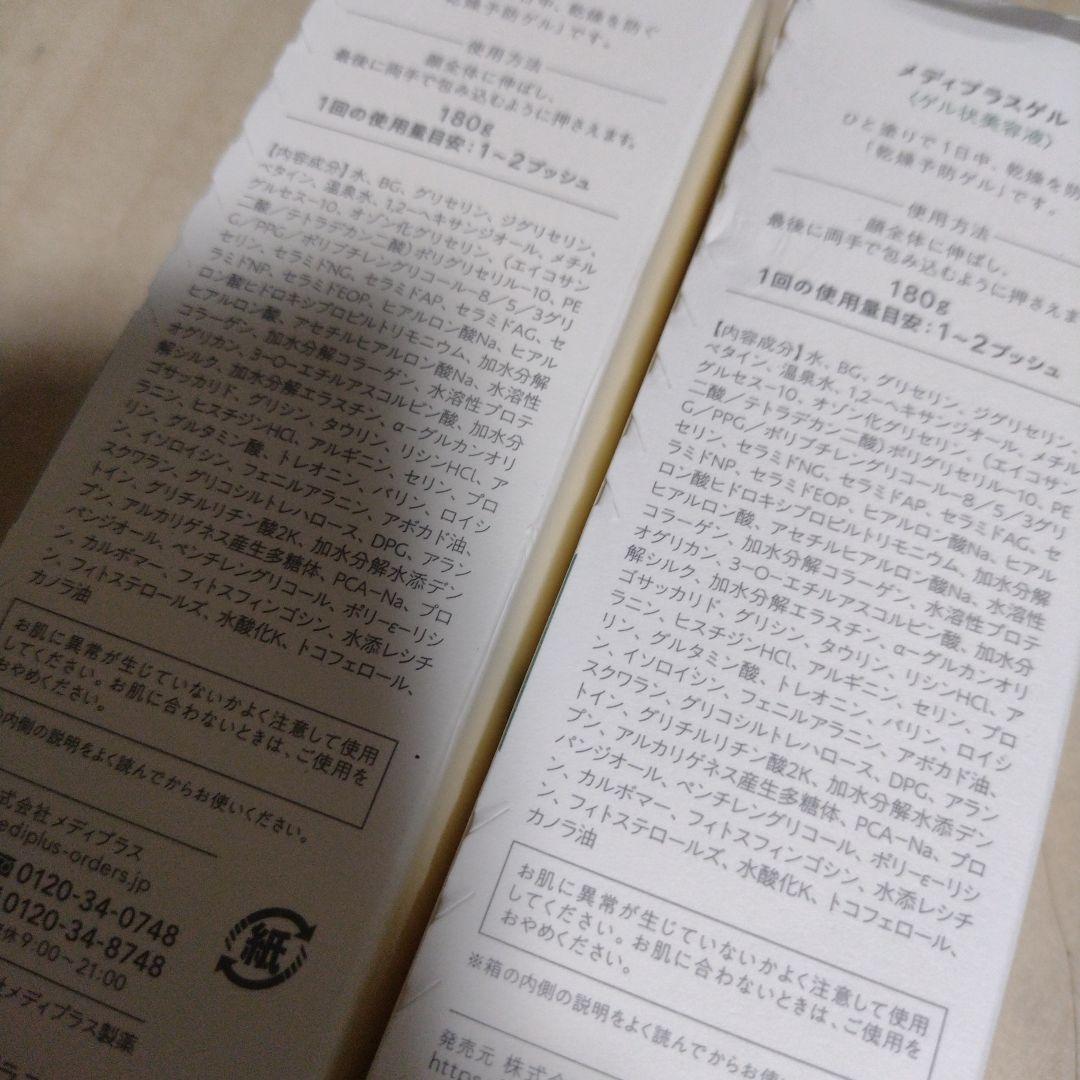 中、乾燥を防ぐ
乾燥予防ゲル」です。
使用方法
顔全体に伸ばし、
最後に両手で包み込むように押さえます。
180g
1回の使用量目安：1～2プッシュ
【内容成分】水、BG、グリセリン、ジグリセリン、
ベタイン、温泉水、1,2-ヘキサンジオール、メチル
グルセス-10、オゾン化グリセリン、（エイコサン
二酸／テトラデカン二酸）ポリグリセリル-10、PE
G／PPG／ポリブチレングリコール-8／5／3グリ
セリン、セラミドNG、セラミドAP、セラミドAG、セ
ラミドNP、セラミドEOP、ヒアルロン酸Na、ヒアル
ロン酸ヒドロキシプロピルトリモニウム、加水分解
ヒアルロン酸、アセチルヒアルロン酸Na、水溶性
コラーゲン、加水分解コラーゲン、水溶性プロテ
オグリカン、3-O-エチルアスコルビン酸、加水分
解シルク、加水分解エラスチン、α-グルカンオリ
ゴサッカリド、グリシン、タウリン、リシンHCl、ア
ラニン、ヒスチジンHCl、アルギニン、セリン、プロ
リン、グルタミン酸、トレオニン、バリン、ロイシ
ン、イソロイシン、フェニルアラニン、アボカド油、
スクワラン、グリコシルトレハロース、DPG、アラン
トイン、グリチルリチン酸2K、加水分解水添デン
プン、アルカリゲネス産生多糖体、PCA-Na、プロ
パンジオール、ペンチレングリコール、ポリ-ε-リシ
ン、カルボマー、フィトスフィンゴシン、水添レシチ
ン、フィトステロールズ、水酸化K、トコフェロール、
カノラ油
お肌に異常が生じていないかよく注意して使用
してください。お肌に合わないときは、ご使用を
おやめください。
の内側の説明をよく読んでからお使いください。
式会社メディプラス
ediplus-orders.jp
0120-34-0748
0120-34-8748
休 9:00～21:00
メディプラス製薬
紙
メディプラスゲル
〈ゲル状美容液〉
ひと塗りで1日中、乾燥を防
「乾燥予防ゲル」です。
使用方法
顔全体に伸ばし、
最後に両手で包み込むように押さえま
180g
1回の使用量目安：1～2プッシュ
【内容成分】水、BG、グリセリン、ジグリセリン、
ベタイン、温泉水、1,2-ヘキサンジオール、メチル
グルセス-10、オゾン化グリセリン、（エイコサン
二酸／テトラデカン二酸）ポリグリセリル-10、PE
G／PPG／ポリブチレングリコール-8／5／3グリ
セリン、セラミドNG、セラミドAP、セラミドAG、セ
ラミドNP、セラミドEOP、ヒアルロン酸Na、ヒアル
ロン酸ヒドロキシプロピルトリモニウム、加水分解
ヒアルロン酸、アセチルヒアルロン酸Na、水溶性
コラーゲン、加水分解コラーゲン、水溶性プロテ
オグリカン、3-O-エチルアスコルビン酸、加水分
解シルク、加水分解エラスチン、α-グルカンオリ
ゴサッカリド、グリシン、タウリン、リシンHCl、ア
ラニン、ヒスチジンHCl、アルギニン、セリン、プロ
リン、グルタミン酸、トレオニン、バリン、ロイシ
ン、イソロイシン、フェニルアラニン、アボカド油、
スクワラン、グリコシルトレハロース、DPG、アラン
トイン、グリチルリチン酸2K、加水分解水添デン
プン、アルカリゲネス産生多糖体、PCA-Na、プロ
パンジオール、ペンチレングリコール、ポリ-ε-リシ
ン、カルボマー、フィトスフィンゴシン、水添レシチ
ン、フィトステロールズ、水酸化K、トコフェロール、
カノラ油
お肌に異常が生じていないかよく注意して使用
してください。お肌に合わないときは、ご使用を
おやめください。
※箱の内側の説明をよく読んでからお使い
発売元 株式会
https